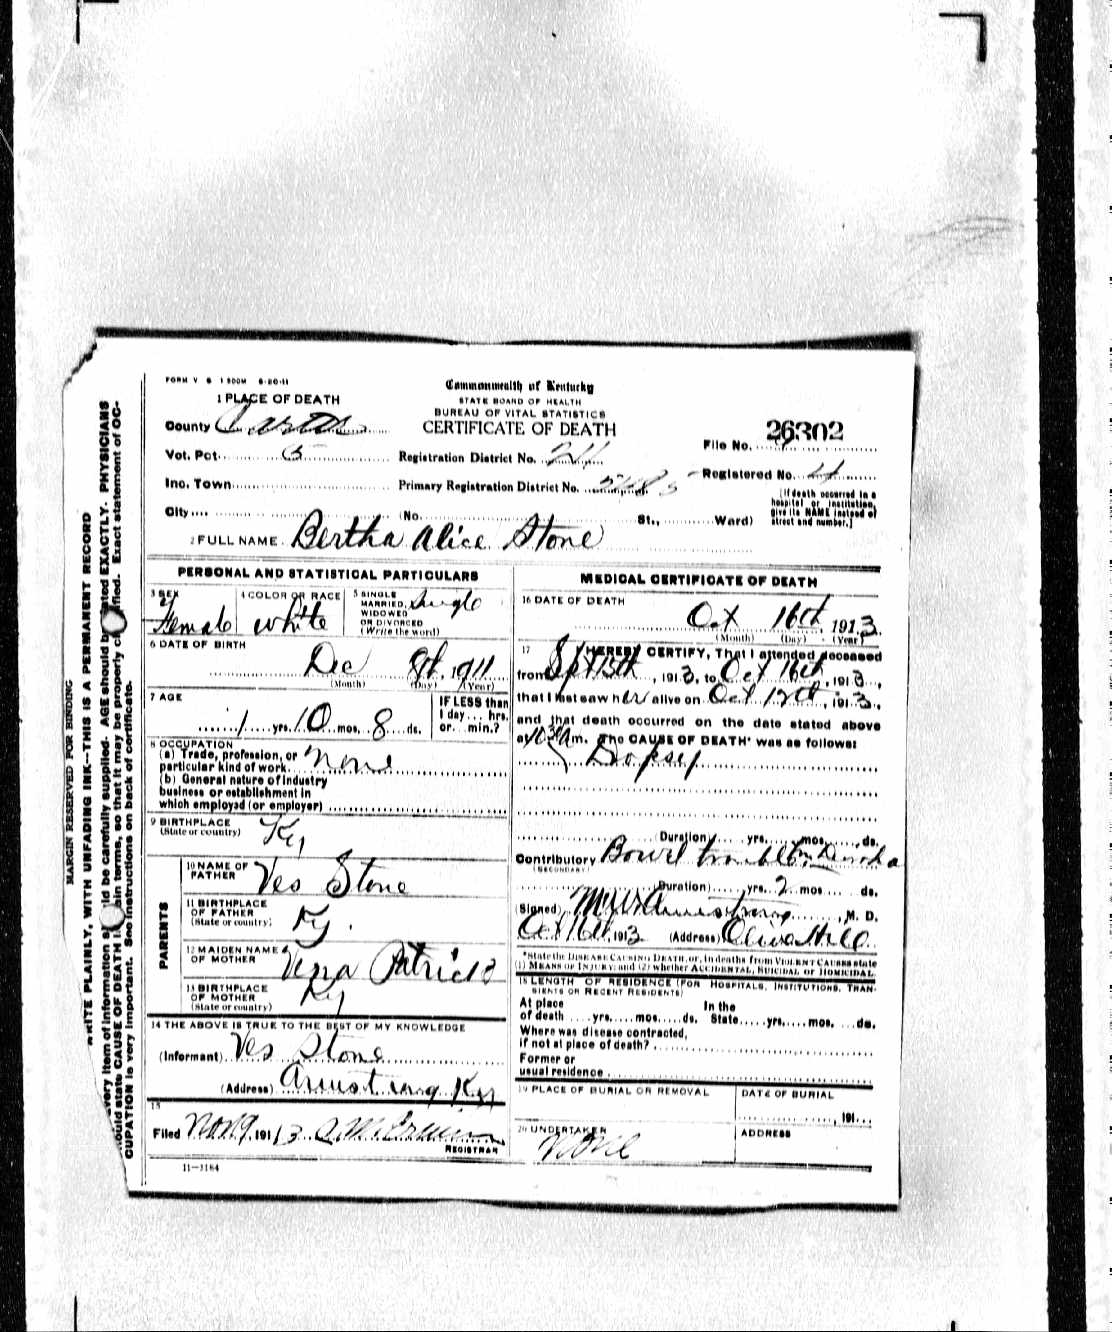 FORM V S 1 500M 6-20-11
1 PLACE OF DEATH
County Carter
Vot. Pct. 5
Inc. Town
City
Commonwealth of Kentucky
STATE BOARD OF HEALTH
BUREAU OF VITAL STATISTICS
CERTIFICATE OF DEATH
Registration District No. 211
Primary Registration District No.
(No. St., Ward)
26302
File No.
Registered No. 4
[If death occurred in a
hospital or institution,
give its NAME instead of
street and number.]
2 FULL NAME Bertha Alice Stone
PERSONAL AND STATISTICAL PARTICULARS
3 SEX
Female
4 COLOR OR RACE
white
5 SINGLE
MARRIED,
WIDOWED
OR DIVORCED
(Write the word)
Single
6 DATE OF BIRTH
Dec 8th, 1911
(Month) (Day) (Year)
7 AGE
1 yrs. 10 mos. 8 ds.
IF LESS than
1 day... hrs.
or... min.?
8 OCCUPATION
(a) Trade, profession, or
particular kind of work. None
(b) General nature of industry
business or establishment in
which employed (or employer)
9 BIRTHPLACE
(State or country) Ky
PARENTS
10 NAME OF
FATHER Ves Stone
11 BIRTHPLACE
OF FATHER
(State or country) Ky.
12 MAIDEN NAME
OF MOTHER Vena Patrick
13 BIRTHPLACE
OF MOTHER
(State or country) Ky
14 THE ABOVE IS TRUE TO THE BEST OF MY KNOWLEDGE
(Informant) Ves Stone
(Address) Armstrong Ky
15
Filed Nov 9, 1913
REGISTRAR
11-3184
MEDICAL CERTIFICATE OF DEATH
16 DATE OF DEATH
Oct 16th, 1913
(Month) (Day) (Year)
17 I HEREBY CERTIFY, That I attended deceased
from Spt 15th, 1913, to Oct 16th, 1913,
that I last saw her alive on Oct 12th, 1913,
and that death occurred on the date stated above
at 10 30 Am. The CAUSE OF DEATH* was as follows:
Dopsey
(Duration) yrs. mos. ds.
Contributory Bowel trouble
(SECONDARY)
(Duration) yrs. 2 mos. ds.
(Signed) Armstrong, M. D.
Oct 16th, 1913 (Address) Olive Hill
*State the DISEASE CAUSING DEATH, or, in deaths from VIOLENT CAUSES state
(1) MEANS OF INJURY; and (2) whether ACCIDENTAL, SUICIDAL or HOMICIDAL.
18 LENGTH OF RESIDENCE (FOR HOSPITALS, INSTITUTIONS, TRAN-
SIENTS OR RECENT RESIDENTS)
At place
of death yrs. mos. ds.
In the
State yrs. mos. ds.
Where was disease contracted,
if not at place of death?
Former or
usual residence
19 PLACE OF BURIAL OR REMOVAL
DATE OF BURIAL
, 191
20 UNDERTAKER
None
ADDRESS
MARGIN RESERVED FOR BINDING
WRITE PLAINLY, WITH UNFADING INK—THIS IS A PERMANENT RECORD
every item of information should be carefully supplied. AGE should be stated EXACTLY. PHYSICIANS
should state CAUSE OF DEATH in plain terms, so that it may be properly classified. Exact statement of OC-
CUPATION is very important. See instructions on back of certificate.